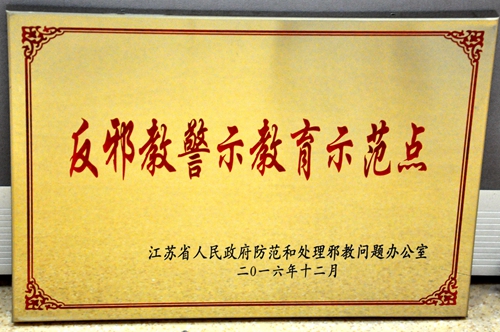 反邪教警示教育示范点
江苏省人民政府防范和处理邪教问题办公室
二〇一六年十二月